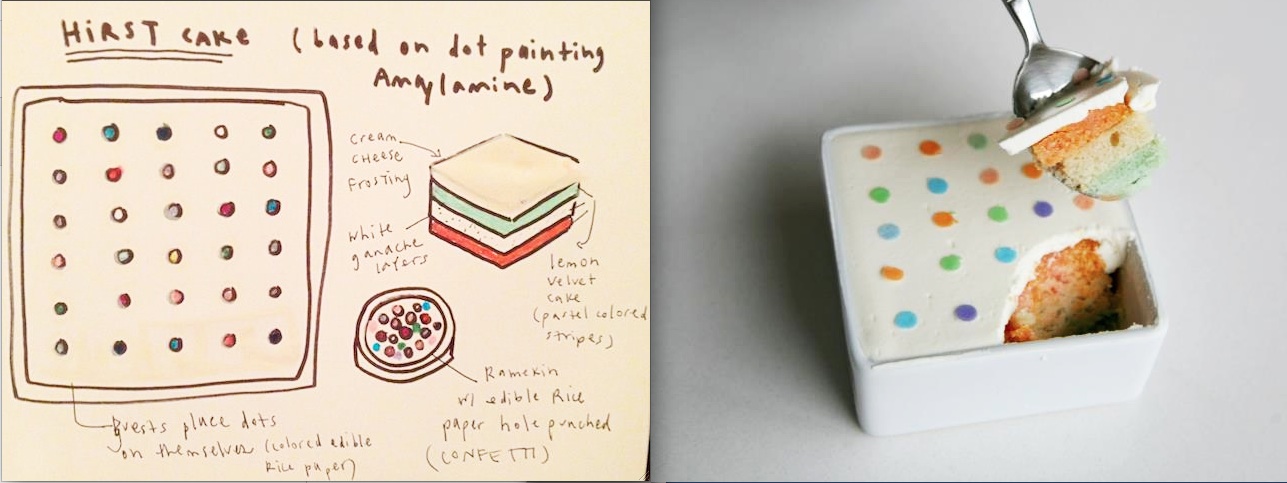 HiRST CAKE (based on dot painting
Amylamine)
cream
cheese
Frosting
white
ganache
layers
lemon
velvet
cake
(pastel colored
stripes)
Ramekin
w/ edible Rice
paper hole punched
(CONFETTI)
guests place dots
on themselves (colored edible
Rice paper)